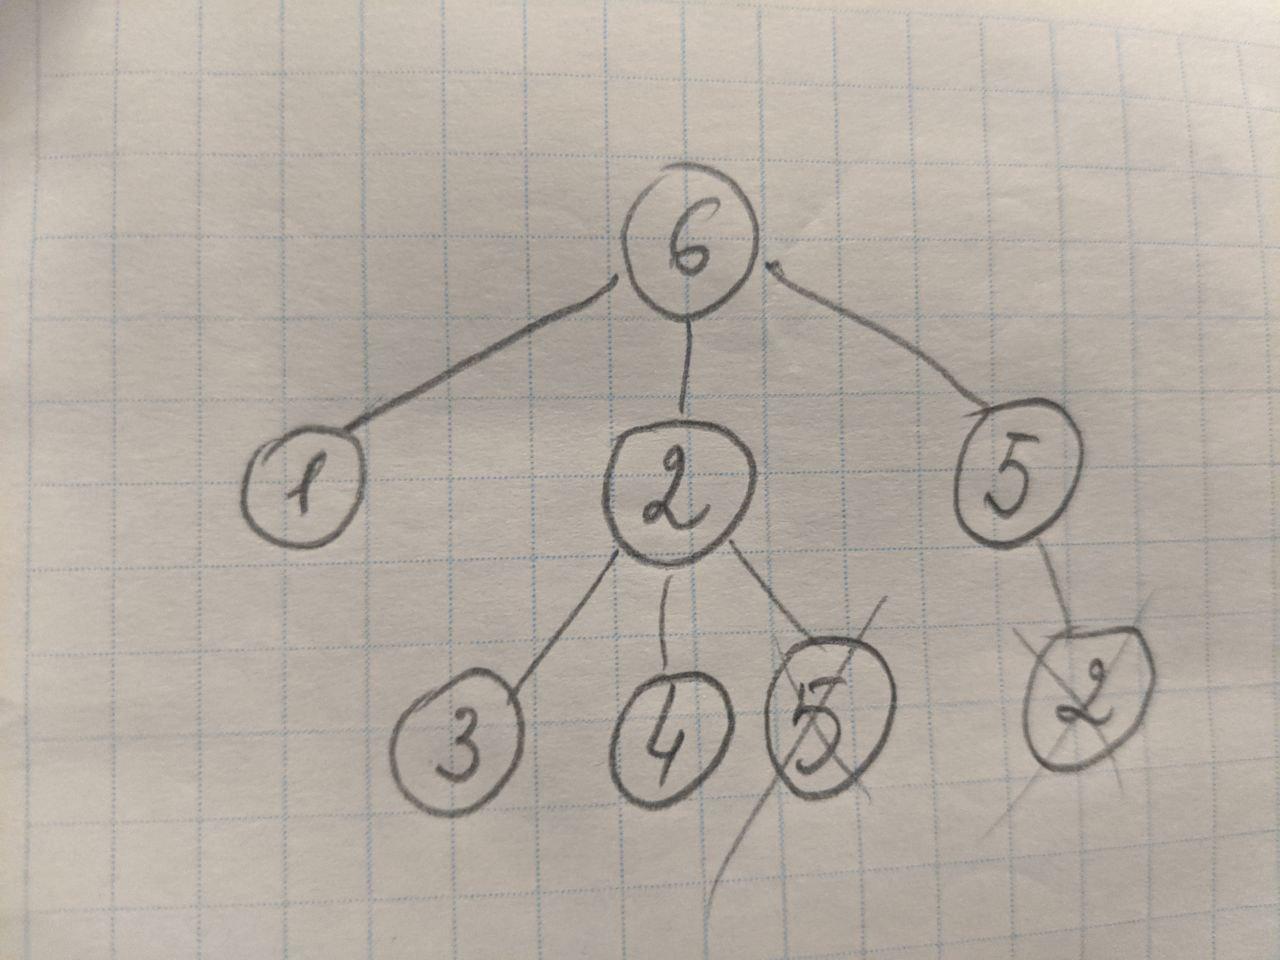 6
1 2 5
3 4 5 2